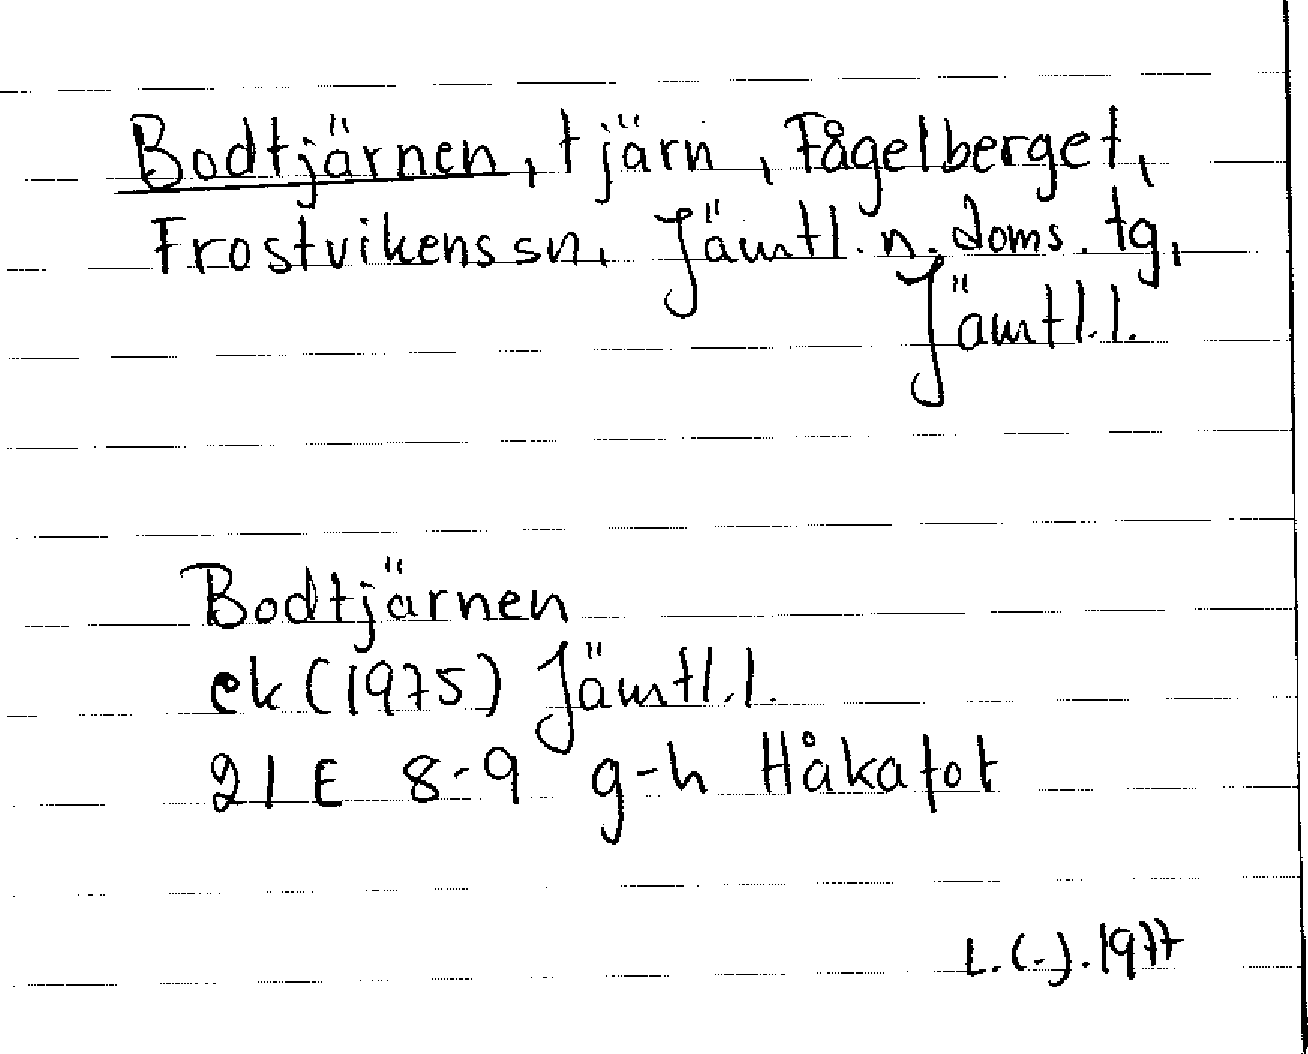 Bodtjärnen, tjärn, Fågelberget,
Frostvikens sn, Jämtl. n. doms. tg,
Jämtl.l.
Bodtjärnen
ek (1975) Jämtl.l.
21 E 8-9 g-h Håkafot
L.C-J. 1977